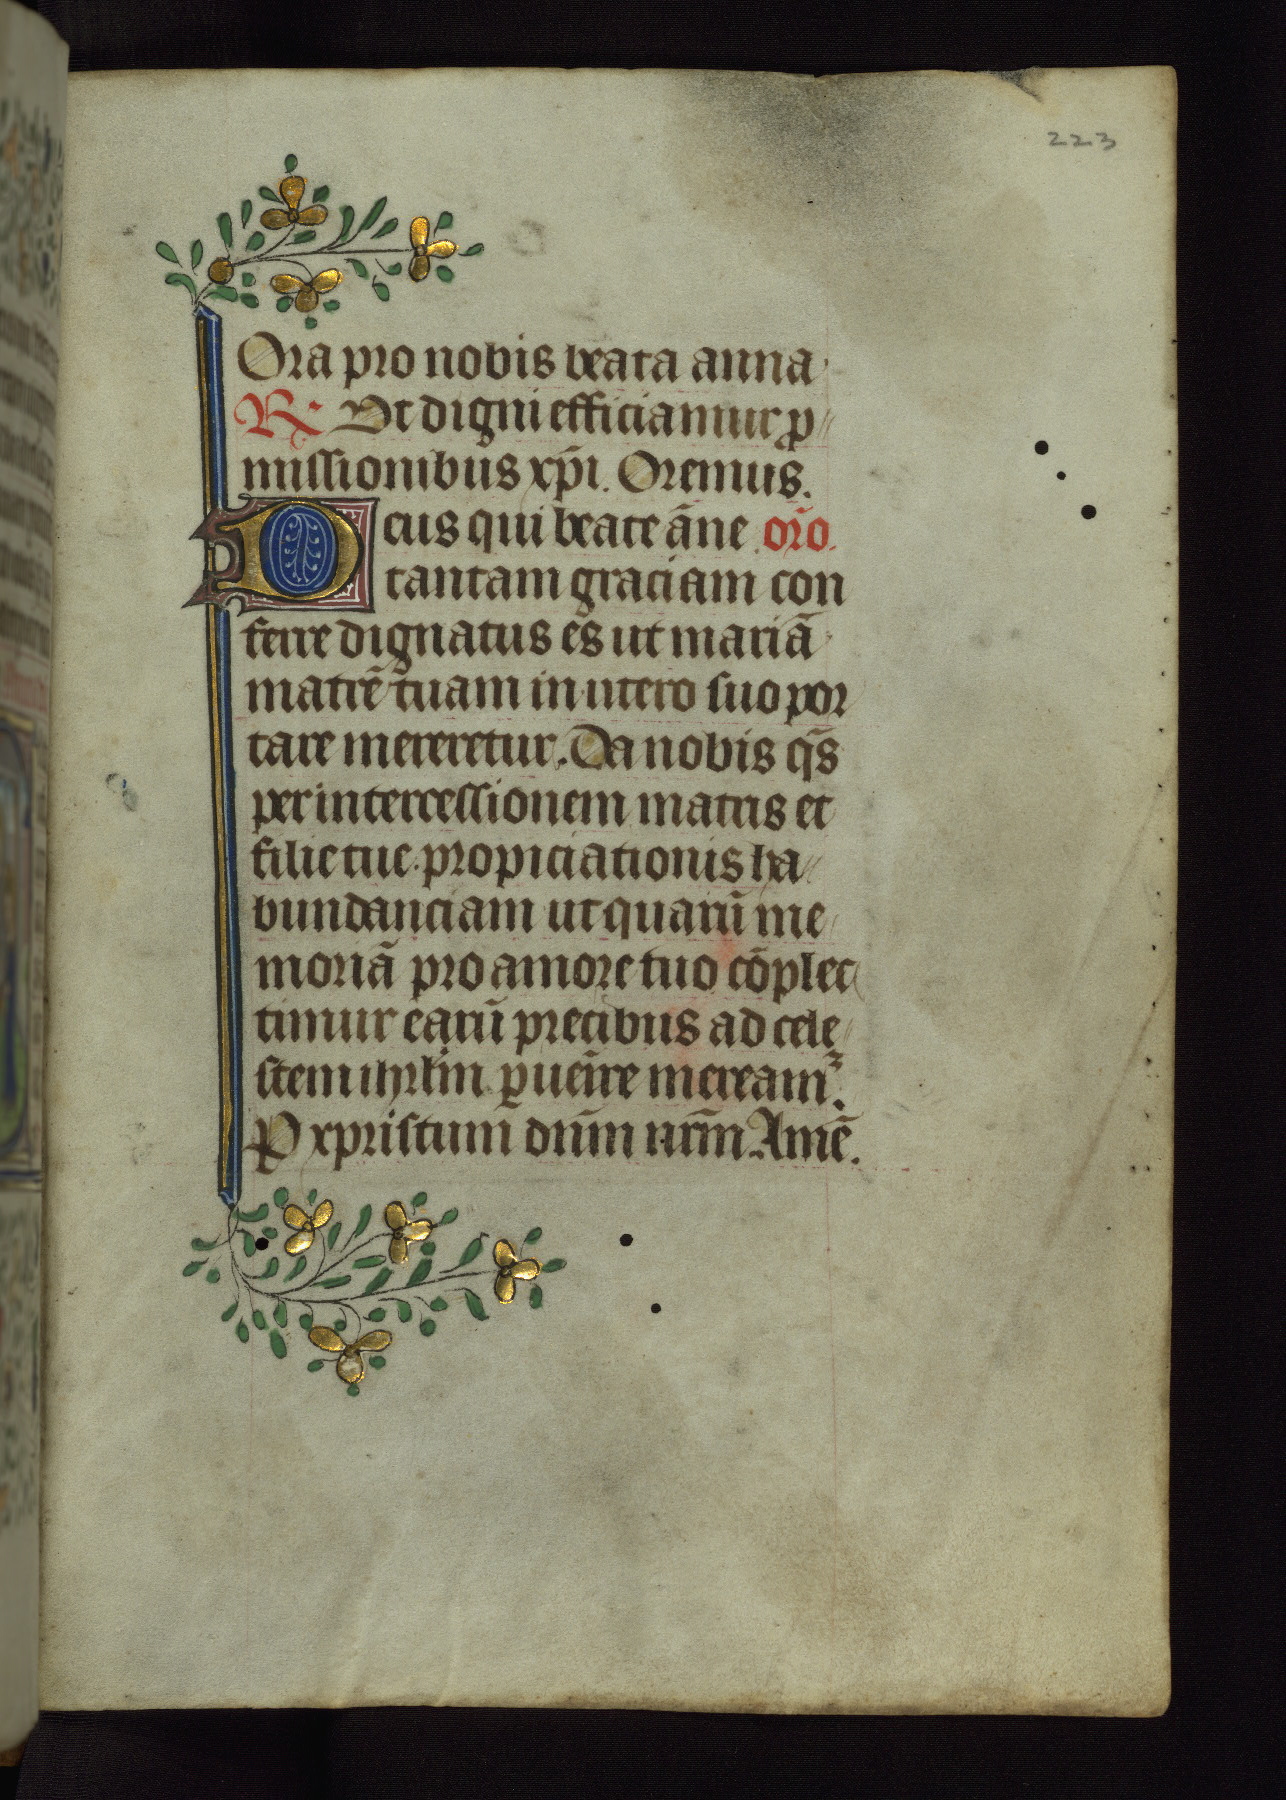 223
Ora pro nobis beata anna
℟ Ut digni efficiamur ꝓ
missionibus xp̄i. Oremus.
Deus qui beate āne or̄o.
tantam graciam con
ferre dignatus es ut mariā
matrē tuam in utero suo por
tare mereretur. Da nobis q̄s
per intercessionem matris et
filie tue propiciationis ha
bundanciam ut quarū me
moriā pro amore tuo cōplec
timur earū precibus ad cele
stem ihrl̄m ꝑuen̄re mereamᷣ.
P xpristum dn̄m nr̄m Amē.